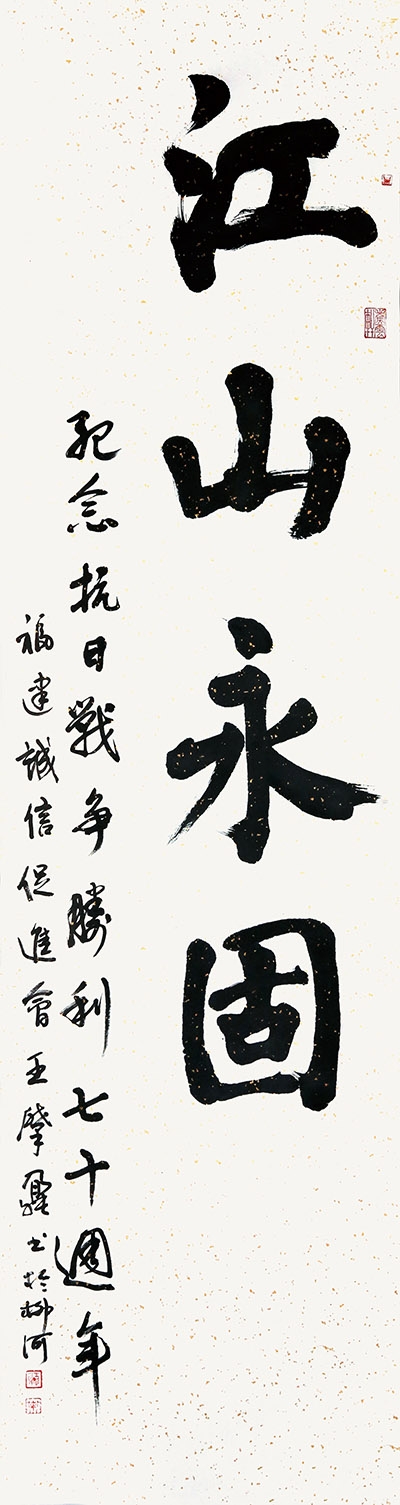 江山永固
紀念抗日戰争勝利七十週年
福建誠信促進會王肇 書於柳河